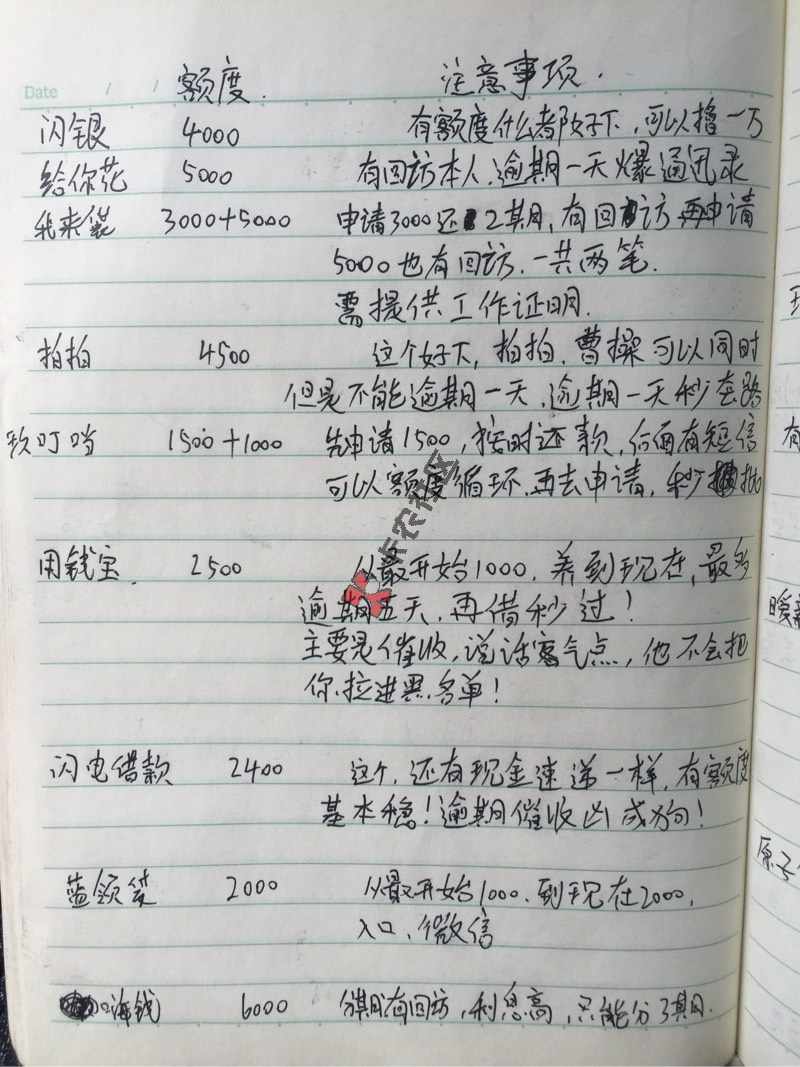 Date / /
额度. 注意事项.
闪银 4000 有额度什么都好下,可以撸一万
给你花 5000 有回访本人.逾期一天爆通讯录
我来贷 3000+5000 申请3000还2期,有回访 再申请
5000也有回访.一共两笔.
需提供工作证明.
拍拍 4500 这个好下,拍拍.曹操可以同时
但是不能逾期一天.逾期一天秒套路
叮当 1500+1000 先申请1500,按时还款,后面有短信
可以额度循环.再去申请,秒批
农社区
用钱宝. 2500 从最开始1000.养到现在,最多
逾期五天,再借秒过!
主要是催收,说话客气点,他不会把
你拉进黑名单!
闪电借款 2400 这个,还有现金速递一样,有额度
基本稳!逾期催收凶成狗!
蓝领 2000 从最开始1000.到现在2000,
入口、微信
嗨钱 6000 分期有回访,利息高,只能分3期.
有
原子